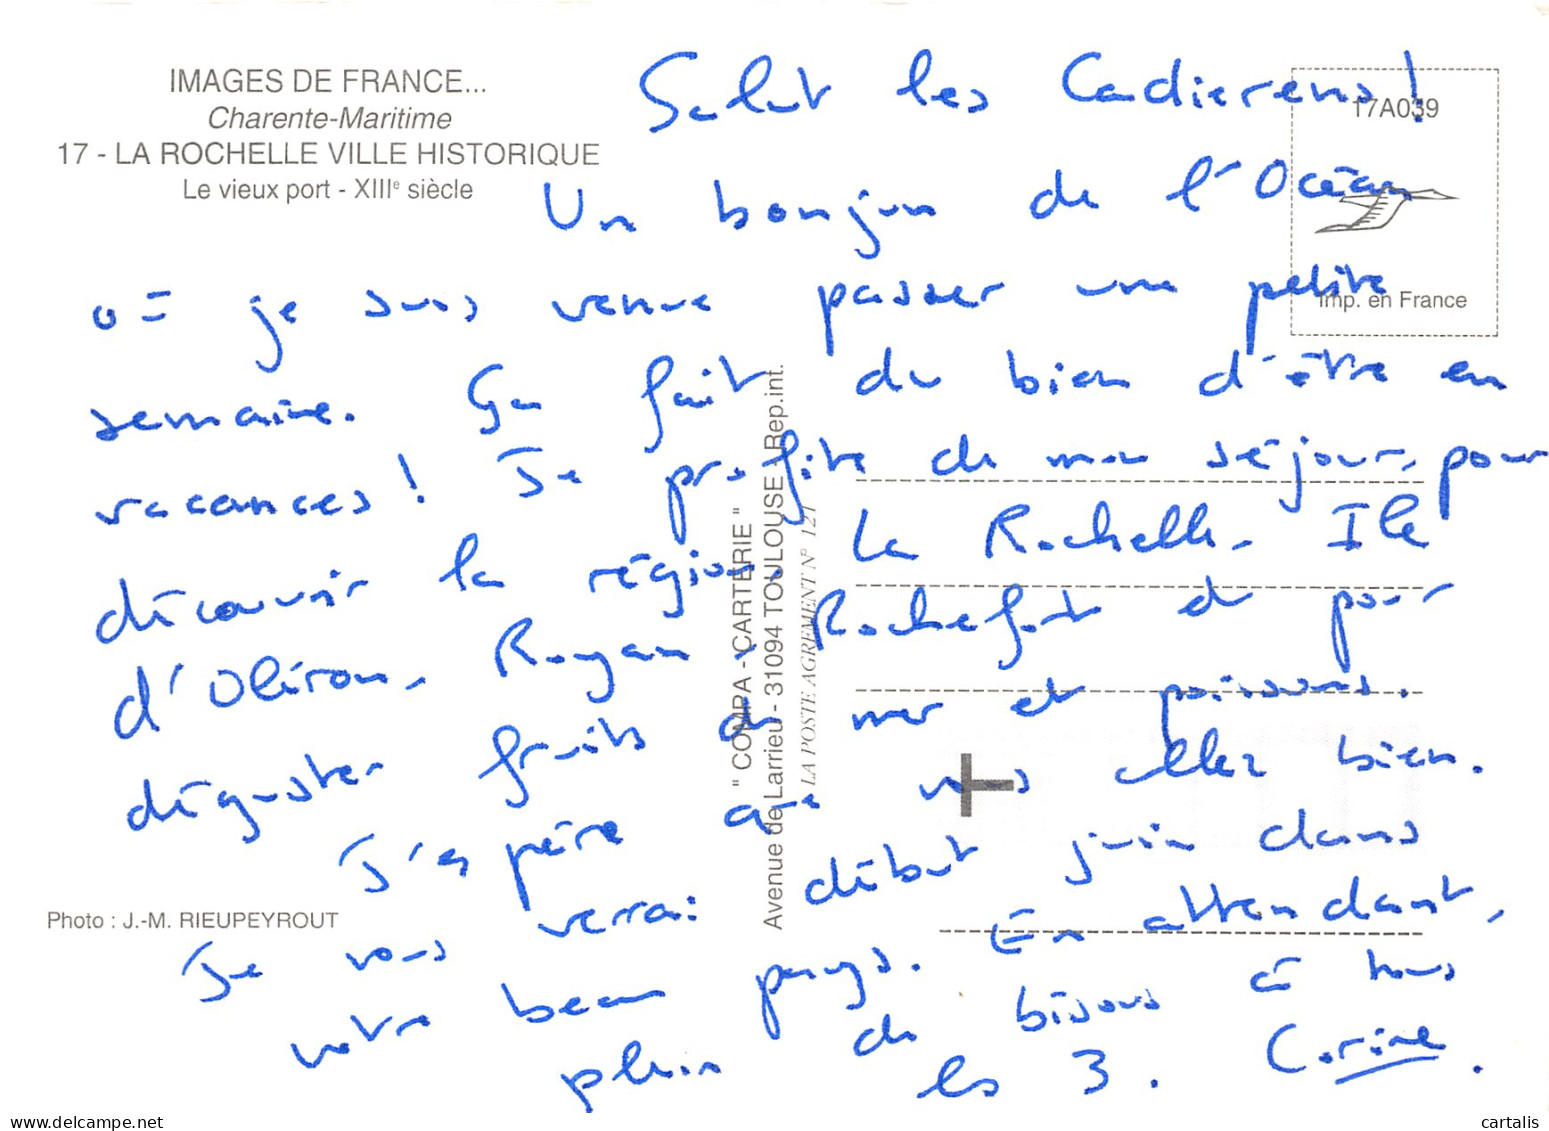 IMAGES DE FRANCE...
Charente-Maritime
17 - LA ROCHELLE VILLE HISTORIQUE
Le vieux port - XIIIe siècle
17A039
Imp. en France
Salut les Cadierens !
Un bonjour de l'Océan
où je suis venue passer une petite
semaine. Ça fait du bien d'être en
vacances ! Je profite de mon séjour pour
découvrir la région, La Rochelle, Ile
d'Oléron, Royan, Rochefort et pour
déguster fruits de mer et poissons.
J'espère que vous allez bien.
Je vous verrai début juin dans
votre beau pays. En attendant,
plein de bisous à tous
les 3. Corine.
" COMPA - CARTERIE "
Avenue de Larrieu - 31094 TOULOUSE - Rep.int.
LA POSTE AGREMENT N° 121
Photo : J.-M. RIEUPEYROUT
www.delcampe.net
cartalis